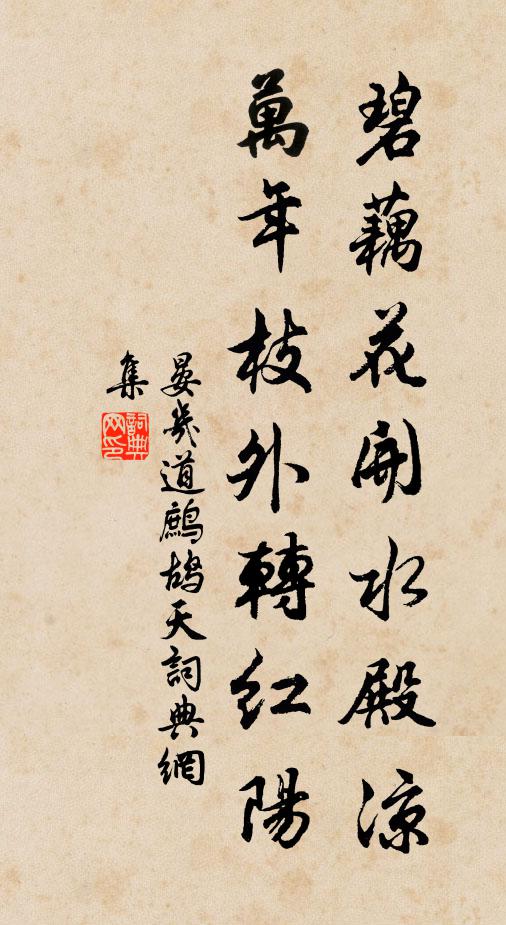 碧藕花開水殿凉
萬年枝外轉紅陽
晏幾道鷓鴣天詞典網
集
詞典
网印